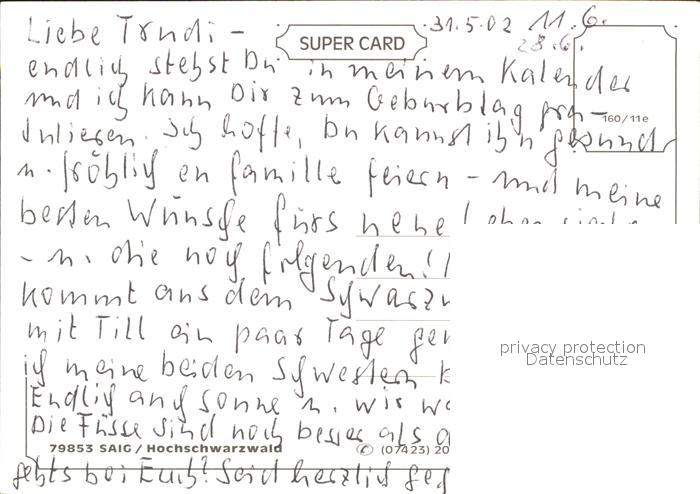 31.5.02 11.6.
28.6.
Liebe Trudi -
SUPER CARD
endlich stehst Du in meinem Kalender
und ich kann Dir zum Geburtstag gra-
160/11e
tulieren. Ich hoffe, Du kannst ihn gesund
u. fröhlich en famille feiern - und meine
besten Wünsche fürs neue
- u. die noch folgenden!
kommt aus dem Schwarzw
mit Till ein paar Tage
ich meine beiden Schwestern
Endlich auch Sonne u. wir
privacy protection
Datenschutz
Die Füsse sind noch besser als
79853 SAIG / Hochschwarzwald
✆ (07423) 20
gehts bei Euch? Seid herzlich